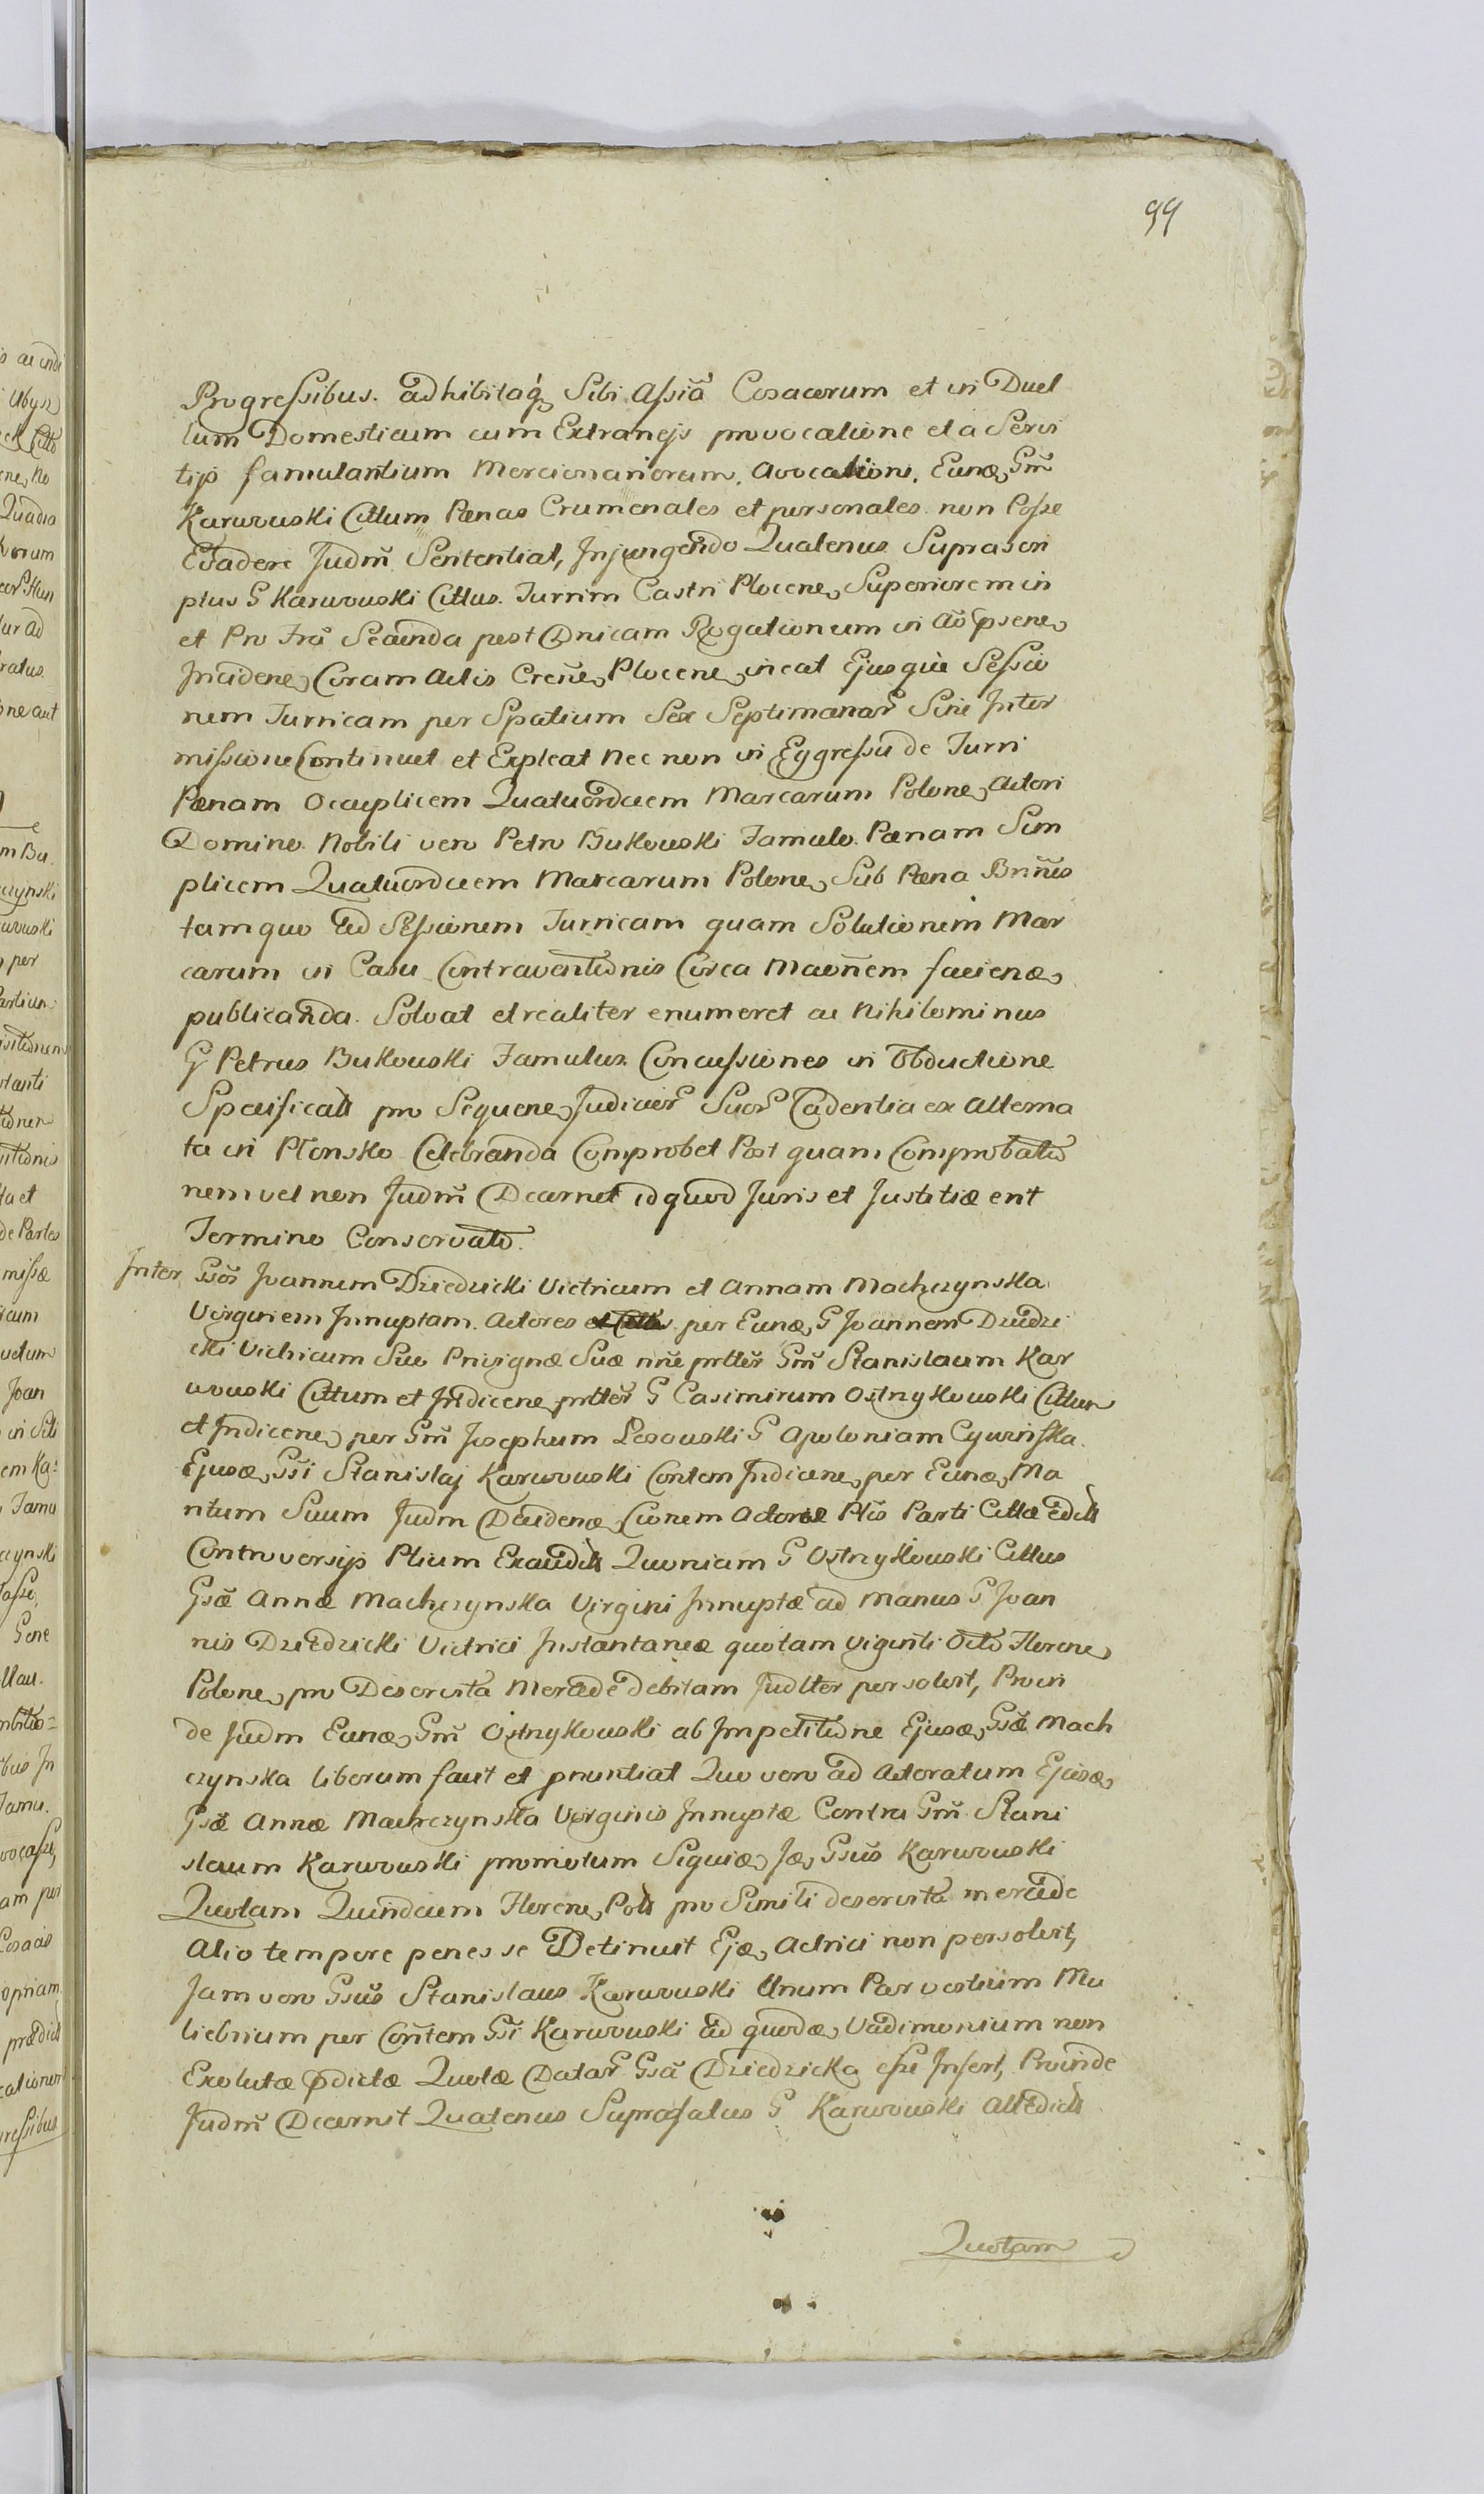 99
Progressibus. adhibitaq́ Sibi Assiã Cosacorum et in Duel
lum Domesticum cum Extranejs provocatione et a Servi
tijs famulantium Mercionariorum. avocatione. Eunde Gm̃
Karwowski Cittum Pœnas Crumenales et personales non Posse
Evadere Judm̃ Sententiat, Injungendo Quatenus Suprascri
ptus G Karwowski Cittus. Turrim Castri Plocene Superiorem in
et Pro Fria Secunda post Dnicam Rogationum in Aõ psene
Incidene Coram Actis Crene Plocene ineat Ejusque Sessio
nem Turricam per Spatium Sex Septimanar Sine Inter
missione Continuet et Expleat Nec non in Eggressu de Turri
Pœnam Ocuplicem Quatuordecem Marcarum Polone Actori
Domino. Nobili vero Petro Bukowski Famulo Pœnam Sim
plicem Quatuordecem Marcarum Polone Sub Pœna Bnñis
tam quo ad Sessionem Turricam quam Solutionem Mar
carum in Casu Contraventionis Circa Maonem faciene
publicanda. Solvat et realiter enumeret ac Nihilominus
G Petrus Bukowski Famulus. Concussiones in Obductione
Specificats pro Sequene Judicior Suor Cadentia ex Alterna
ta in Płonsko Celebranda Comprobet Post quam Comprobatio
nem vel non Judm̃ Decernet id quod Juris et Justitiæ erit
Termino Conservato.
Inter Gsos Joannem Dziedzicki Victricum et Annam Machczynska
Virginem Innuptam. Actores et Cittos per Eunde G Joannem Dziedzi
cki Victricum Suo Privignæ Suæ nñe prtter Gm̃ Stanislaum Kar
wowski Cittum et Indicene prtter G Casimirum Ostrzykowski Cittum
et Indicene per Gm̃ Josephum Lesowski G Apoloniam Cywińska.
Ejusde Gsi Stanislaj Karwowski Contem Indicene per Eunde Ma
ritum Suum Judm Decidendo Cionem Actoræ Ptis Parti Cittæ edits
Controversijs Ptium Exaudits Quoniam G Ostrzykowski Cittus
Gsæ Annæ Machczynska Virgini Innuptæ ad Manus G Joan
nis Dziedzicki Victrici Instantaneæ quotam Viginti Octo Florene
Polone pro Deservita Mercede debitam Judlter persolvit, Proin
de Judm Eunde Gm̃ Ostrzykowski ab Impetitione Ejusde Gsæ Mach
czynska liberum facit et pnuntiat Quo vero ad Actoratum Ejusde
Gsæ Annæ Machczynska Virginis Innuptæ Contra Gm̃ Stani
slaum Karwowski promotum Siquide Ide Gsus Karwowski
Quotam Quindecem Florene Pols pro Simili deservita mercede
Alio tempore penes se Detinuit Ejde Actrici non persolvit,
Jam vero Gsus Stanislaus Karwowski Unum Par vestium Mu
liebrium per Contem Gsi Karwowski ad quodde Vadimonium non
Exolutæ pdictæ Quotæ Datar Gsa Dziedzicka esse Insert, Proinde
Judm̃ Decernit Quatenus Suprafatus G Karwowski Attedicts
Quotam